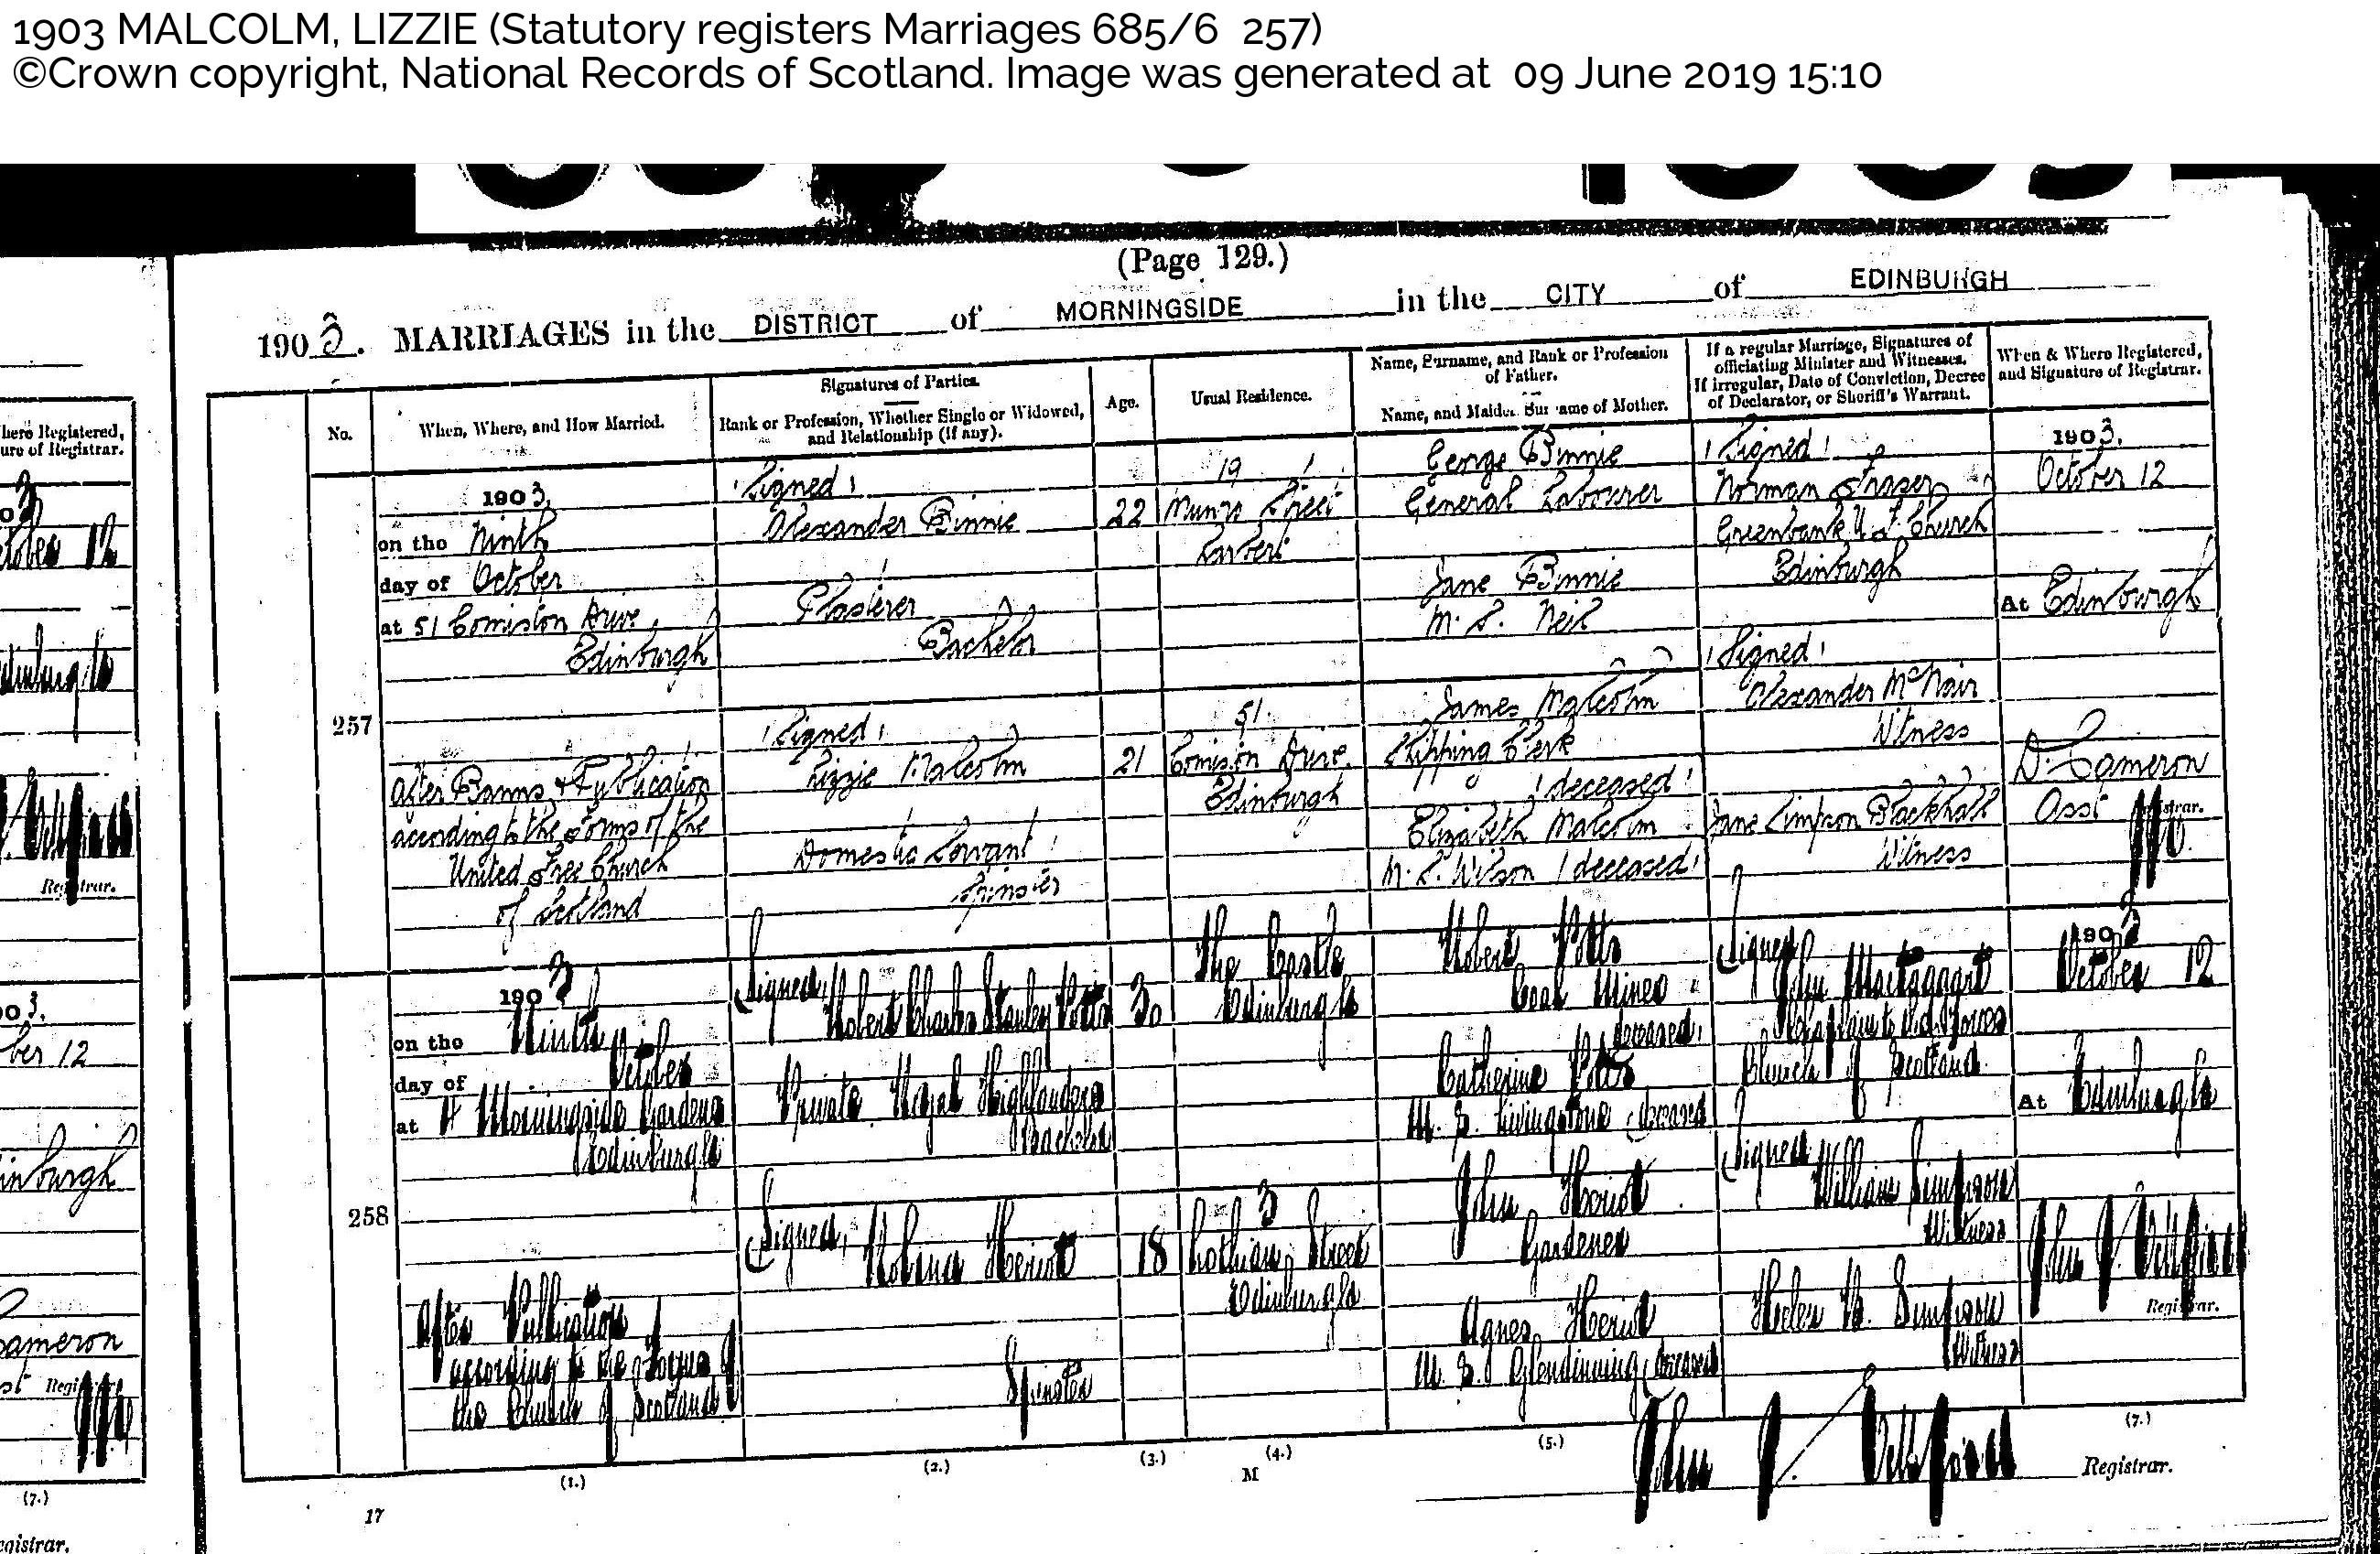 1903 MALCOLM, LIZZIE (Statutory registers Marriages 685/6 257)
©Crown copyright, National Records of Scotland. Image was generated at 09 June 2019 15:10
(Page 129.)
1903. MARRIAGES in the DISTRICT of MORNINGSIDE in the CITY of EDINBURGH
No.
When, Where, and How Married.
Signatures of Parties.
Rank or Profession, Whether Single or Widowed,
and Relationship (if any).
Age.
Usual Residence.
Name, Surname, and Rank or Profession
of Father.
Name, and Maiden Surname of Mother.
If a regular Marriage, Signatures of
officiating Minister and Witnesses.
If irregular, Date of Conviction, Decree
of Declarator, or Sheriff's Warrant.
When & Where Registered,
and Signature of Registrar.
257
1903.
on the Ninth
day of October
at 51 Comiston Drive
Edinburgh
After Banns & Publication
according to the Forms of the
United Free Church
of Scotland
(Signed)
Alexander Binnie
Plasterer
Bachelor
(Signed)
Lizzie Malcolm
Domestic Servant
Spinster
22
21
19
Munro Street
Larbert
51
Comiston Drive
Edinburgh
George Binnie
General Labourer
Jane Binnie
M.S. Neil
James Malcolm
Shipping Clerk
(deceased)
Elizabeth Malcolm
M.S. Wilson (deceased)
(Signed)
Norman Fraser
Greenbank U.F. Church
Edinburgh
(Signed)
Alexander McNair
Witness
Jane Simpson Blackhall
Witness
1903.
October 12
At Edinburgh
D. Cameron
Asst Registrar.
258
1903
on the Ninth
day of October
at 4 Morningside Gardens
Edinburgh
After Publication
according to the Forms of
the Church of Scotland
(Signed)
Robert Charles Stanley Potts
Private Royal Highlanders
Bachelor
(Signed)
Robina Heriot
Spinster
30
18
The Castle
Edinburgh
3
Lothian Street
Edinburgh
Robert Potts
Coal Miner
deceased
Catherine Potts
M.S. Livingstone (deceased)
John Heriot
Gardener
Agnes Heriot
M.S. Glendinning (deceased)
(Signed)
John Mactaggart
Chaplain to the Forces
Church of Scotland
(Signed)
William Simpson
Witness
Helen B. Simpson
Witness
1903
October 12
At Edinburgh
John J.
Registrar.
(1.) (2.) (3.) (4.) (5.) (7.)
M
17
John J.
Registrar.
here Registered,
ure of Registrar.
Registrar.
ber 12
inburgh
ameron
(7.)
egistrar.